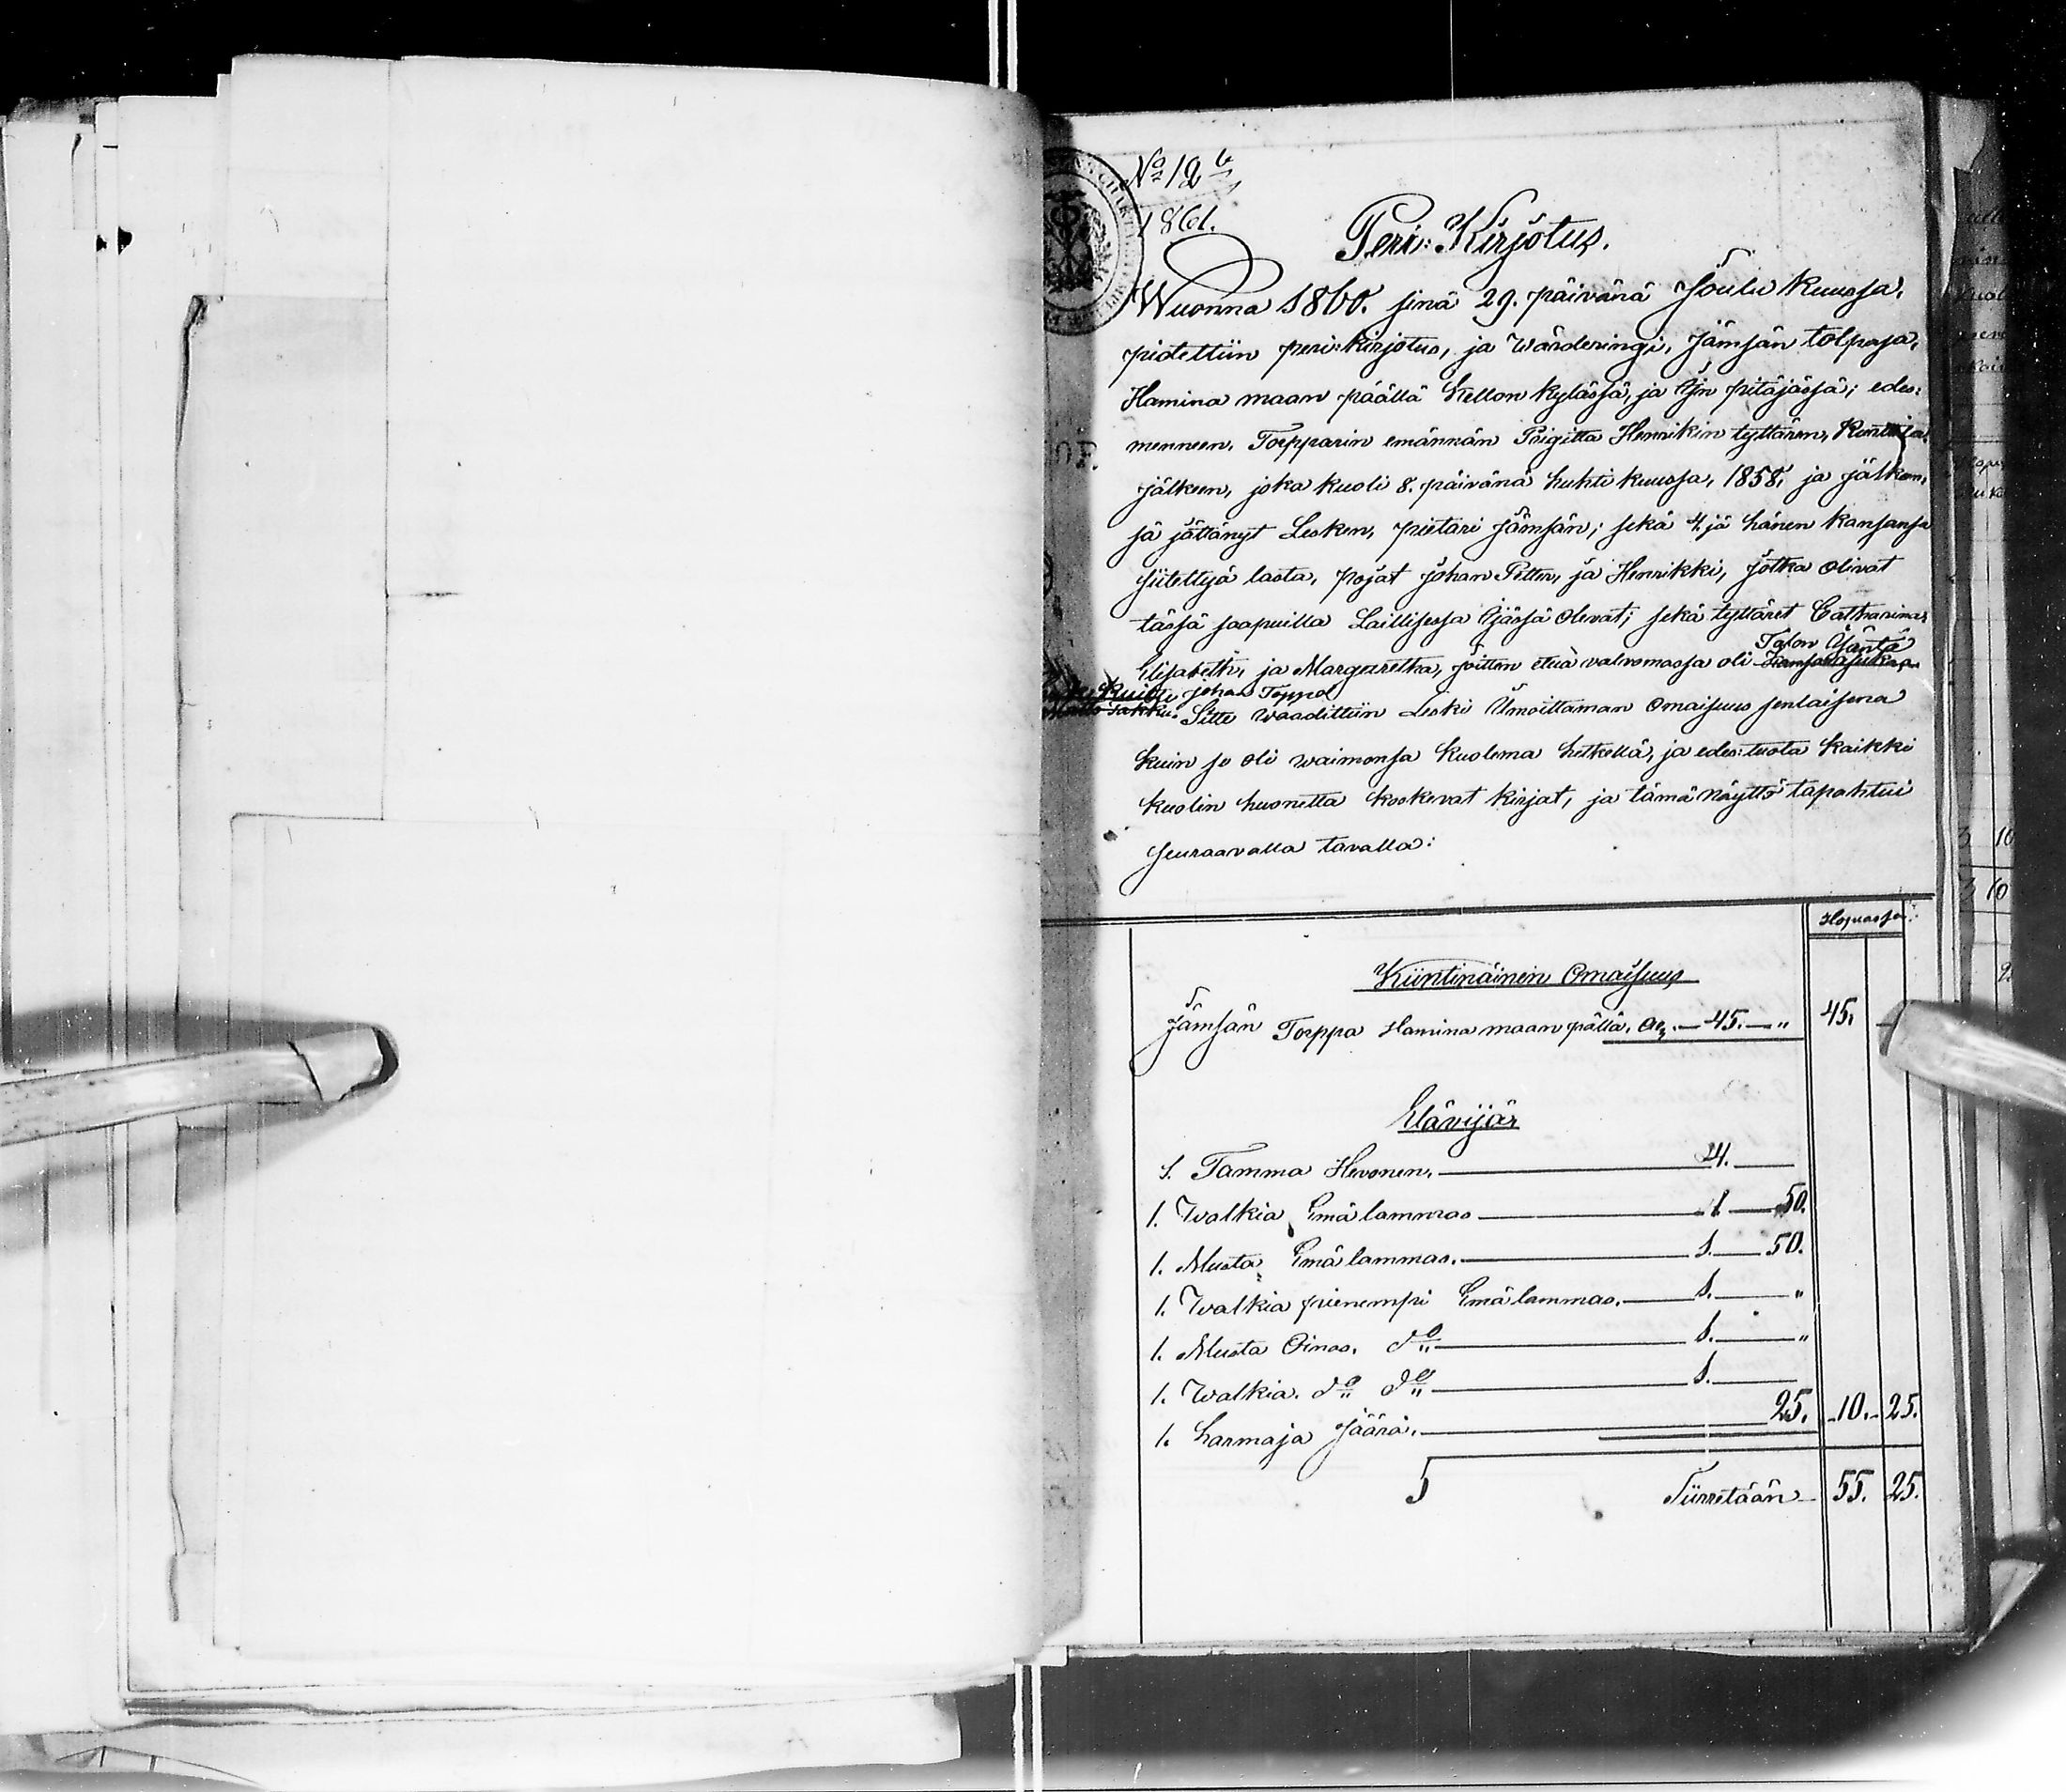 No 12
1861.
Peri: Kirjotus.
Wuonna 1860. sinä 29. päivänä Joulu kuussa,
pidettiin peri:kirjotus, ja Wärderingi, Jämsän tolpasa,
Hamina maan päällä Kellon kylässä, ja Ijn pitäjässä; edes:
menneen, Torpparin emännän Prigitta Henrikin tyttären,
jälkeen, joka kuoli 8. päivänä huhti kuussa, 1858, ja jälken,
sä jättänyt Lesken, pietari Jämsän; sekä 4. jä hänen kansansa
siitettyä lasta, pojat Johan Petter, ja Henrikki, jotka olivat
tässä saapuilla Laillisessa Ijässä olevat; sekä tyttäret Catharina,
Talon Isäntä
Elisabeth, ja Margaretha, joitten etua valvomassa oli
Johan Toppol
Sitte waadittiin Leski Umoittaman Omaisuus senlaisena
kuin se oli waimonsa kuolema hetkellä, ja edes:tuota kaikki
kuolin huonetta koskevat kirjat, ja tämä näyttö tapahtui
seuraavalla tavalla:
Hopiassa:
Kiintinäinen Omaisuus
Jämsän Torppa Hamina maan pällä. — 45. — " 45. —
Elävijä
1. Tamma Hevonen. — 4. —
1. Walkia Emä lammas — 1 — 50.
1. Musta Emä lammas. — 1. — 50.
1. Walkia pienempi Emä lammas. — 1. — "
1. Musta Oinas. do — 1. — "
1. Walkia. do do — 1. —
1. harmaja Jäärä. — 25. 10. 25.
Siirretään — 55. 25.